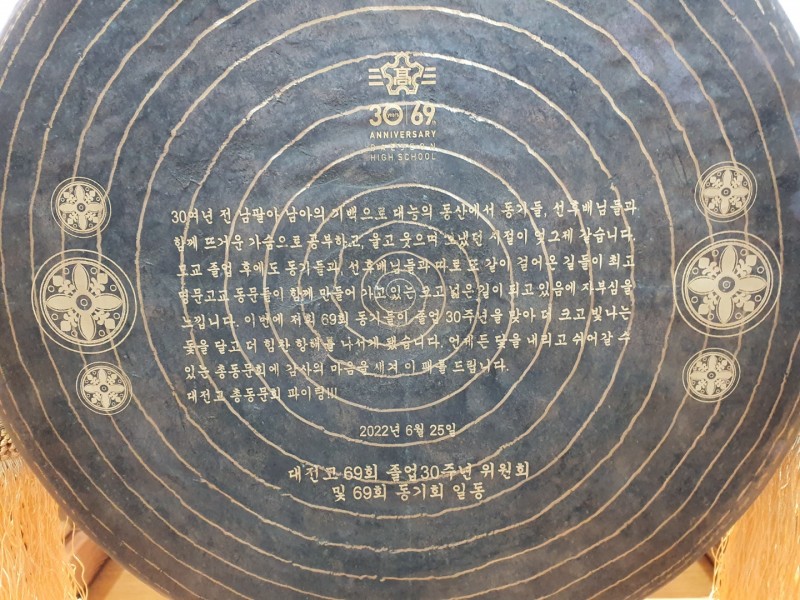 高
30 years 69th
ANNIVERSARY
DAEJEON
HIGH SCHOOL
30여년 전 남팔아 남아의 기백으로 대능의 동산에서 동기들, 선후배님들과
함께 뜨거운 가슴으로 공부하고, 울고 웃으며 보냈던 시절이 엊그제 같습니다.
모교 졸업 후에도 동기들과, 선후배님들과 따로 또 같이 걸어온 길들이 최고
명문고교 동문들이 함께 만들어 가고 있는 오고 넓은 길이 되고 있음에 자부심을
느낍니다. 이번에 저희 69회 동기들이 졸업 30주년을 맞아 더 크고 빛나는
돛을 달고 더 힘찬 항해를 나서게 됐습니다. 언제든 닻을 내리고 쉬어갈 수
있는 총동문회에 감사의 마음을 새겨 이 패를 드립니다.
대전고 총동문회 파이팅!!!
2022년 6월 25일
대전고 69회 졸업30주년 위원회
및 69회 동기회 일동